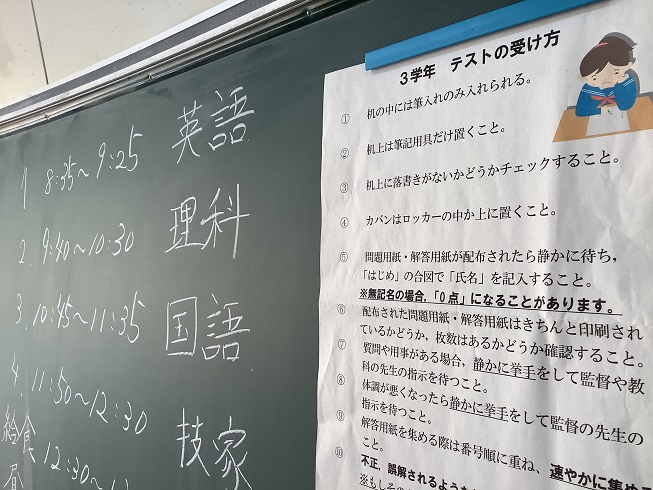 1. 8:35～9:25 英語
2. 9:40～10:30 理科
3. 10:45～11:35 国語
4. 11:50～12:30 技家
給食 12:30～
3学年 テストの受け方
① 机の中には筆入れのみ入れられる。
② 机上は筆記用具だけ置くこと。
③ 机上に落書きがないかどうかチェックすること。
④ カバンはロッカーの中か上に置くこと。
⑤ 問題用紙・解答用紙が配布されたら静かに待ち，
「はじめ」の合図で「氏名」を記入すること。
※無記名の場合，「０点」になることがあります。
⑥ 配布された問題用紙・解答用紙はきちんと印刷され
ているかどうか，枚数はあるかどうか確認すること。
⑦ 質問や用事がある場合，静かに挙手をして監督や教
科の先生の指示を待つこと。
⑧ 体調が悪くなったら静かに挙手をして監督の先生の
指示を待つこと。
⑨ 解答用紙を集める際は番号順に重ね，速やかに集め
こと。
⑩ 不正，誤解されるような